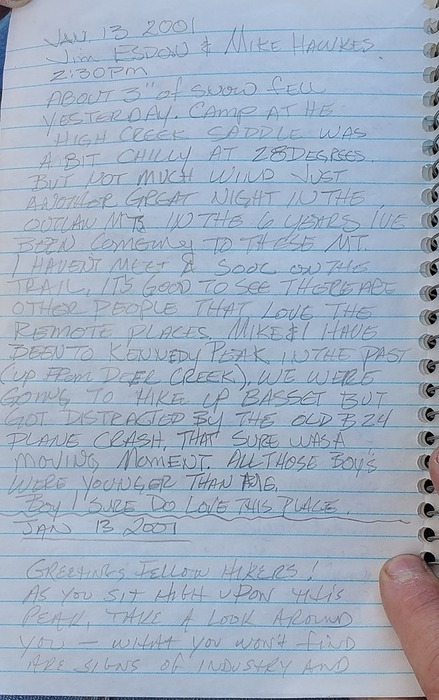 JAN 13 2001
Jim ESDON & MIKE HAWKES.
2:30PM
ABOUT 3" of SNOW FELL
YESTERDAY. CAMP AT HE
HIGH CREEK SADDLE WAS
A BIT CHILLY AT 28 DEGREES.
BUT NOT MUCH WIND JUST
ANOTHER GREAT NIGHT IN THE
OUTLAW MTS IN THE 6 YEARS I'VE
BEEN COMEING TO THESE MT.
I HAVENT MEET A SOOL ON THE
TRAIL, IT'S GOOD TO SEE THERE ARE
OTHER PEOPLE THAT LOVE THE
REMOTE PLACES. MIKE & I HAVE
BEEN TO KENNEDY PEAK IN THE PAST
(UP FROM DEER CREEK), WE WERE
GOING TO HIKE UP BASSET BUT
GOT DISTRACTED BY THE OLD B24
PLANE CRASH, THAT SURE WAS A
MOVING MOMENT. ALL THOSE BOY'S
WERE YOUNGER THAN ME.
BOY I SURE DO LOVE THIS PLACE.
JAN 13 2001
GREETINGS FELLOW HIKERS!
AS YOU SIT HIGH UPON THIS
PEAK, TAKE A LOOK AROUND
YOU — WHAT YOU WON'T FIND
ARE SIGNS OF INDUSTRY AND